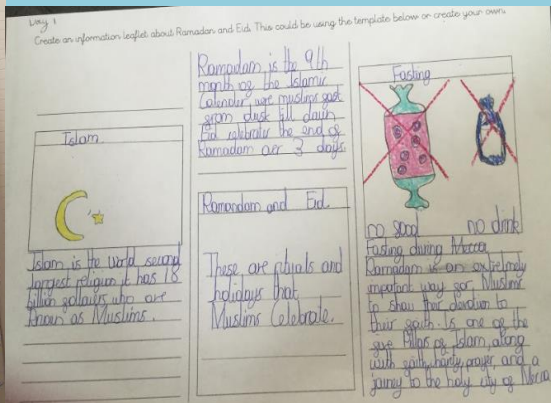 Day 1
Create an information leaflet about Ramadan and Eid. This could be using the template below or create your own.
Islam
Islam is the world second
largest religion it has 18
billion follauers who are
known as Muslims.
Ramadam is the 9th
month of the Islamic
Calender, were muslims fast
from dusk till daun
Eid celebrate the end of
Ramadam over 3 days.
Ramandam and Eid.
These are rituals and
holidays that
Muslims Celebrate.
Fasting
no food
no drink
Fasting during Mecca
Ramadam is an extremely
important way for Muslims
to show their devotion to
their faith. Is one of the
five Pillars of Islam, along
with faith, charity, prayer, and a
journey to the holy city of Mecca